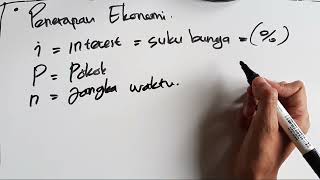 • Penerapan Ekonomi.
i = interest = suku bunga = (%)
P = Pokok
n = Jangka waktu.